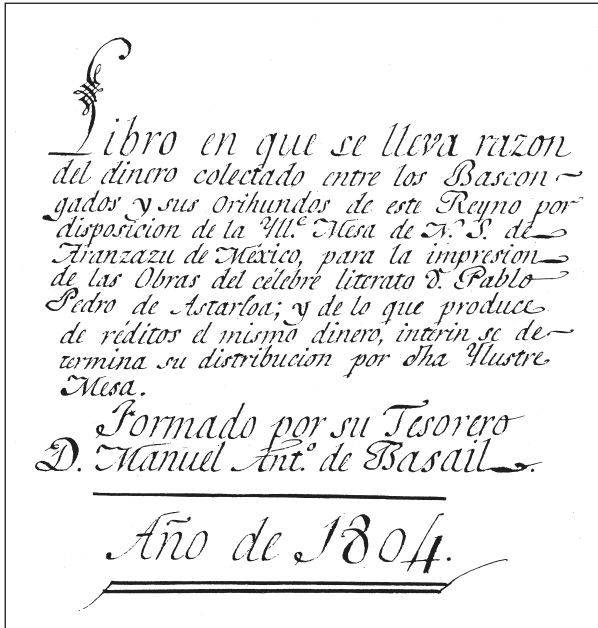 Libro en que se lleva razon
del dinero colectado entre los Bascon-
gados y sus Orihundos de este Reyno por
disposicion de la Yll.e Mesa de N.a S. de
Aranzazu de México, para la impresion
de las Obras del célebre literato D. Pablo
Pedro de Astarloa; y de lo que produce
de réditos el mismo dinero, interin se de-
termina su distribucion por dha Ylustre
Mesa.
Formado por su Tesorero
D. Manuel Ant.o de Basail.
Año de 1804.